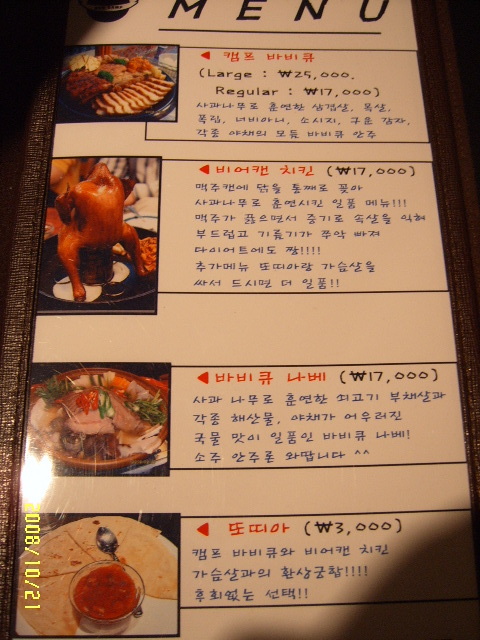 MENU
◀ 캠프 바비큐
(Large : ₩25,000.
Regular : ₩17,000)
사과나무로 훈연한 삼겹살, 목살,
폭립, 너비아니, 소시지, 구운 감자,
각종 야채의 모듬 바비큐 안주
◀비어캔 치킨 (₩17,000)
맥주캔에 닭을 통째로 꽂아
사과나무로 훈연시킨 일품 메뉴!!!
맥주가 끓으면서 증기로 속살을 익혀
부드럽고 기름기가 쭈악 빠져
다이어트에도 짱!!!!
추가메뉴 또띠아랑 가슴살을
싸서 드시면 더 일품!!
◀바비큐 나베 (₩17,000)
사과 나무로 훈연한 쇠고기 부채살과
각종 해산물, 야채가 어우러진
국물 맛이 일품인 바비큐 나베!
소주 안주론 와땁니다 ^^
◀ 또띠아 (₩3,000)
캠프 바비큐와 비어캔 치킨
가슴살과의 환상궁합!!!!
후회없는 선택!!
2008/10/21